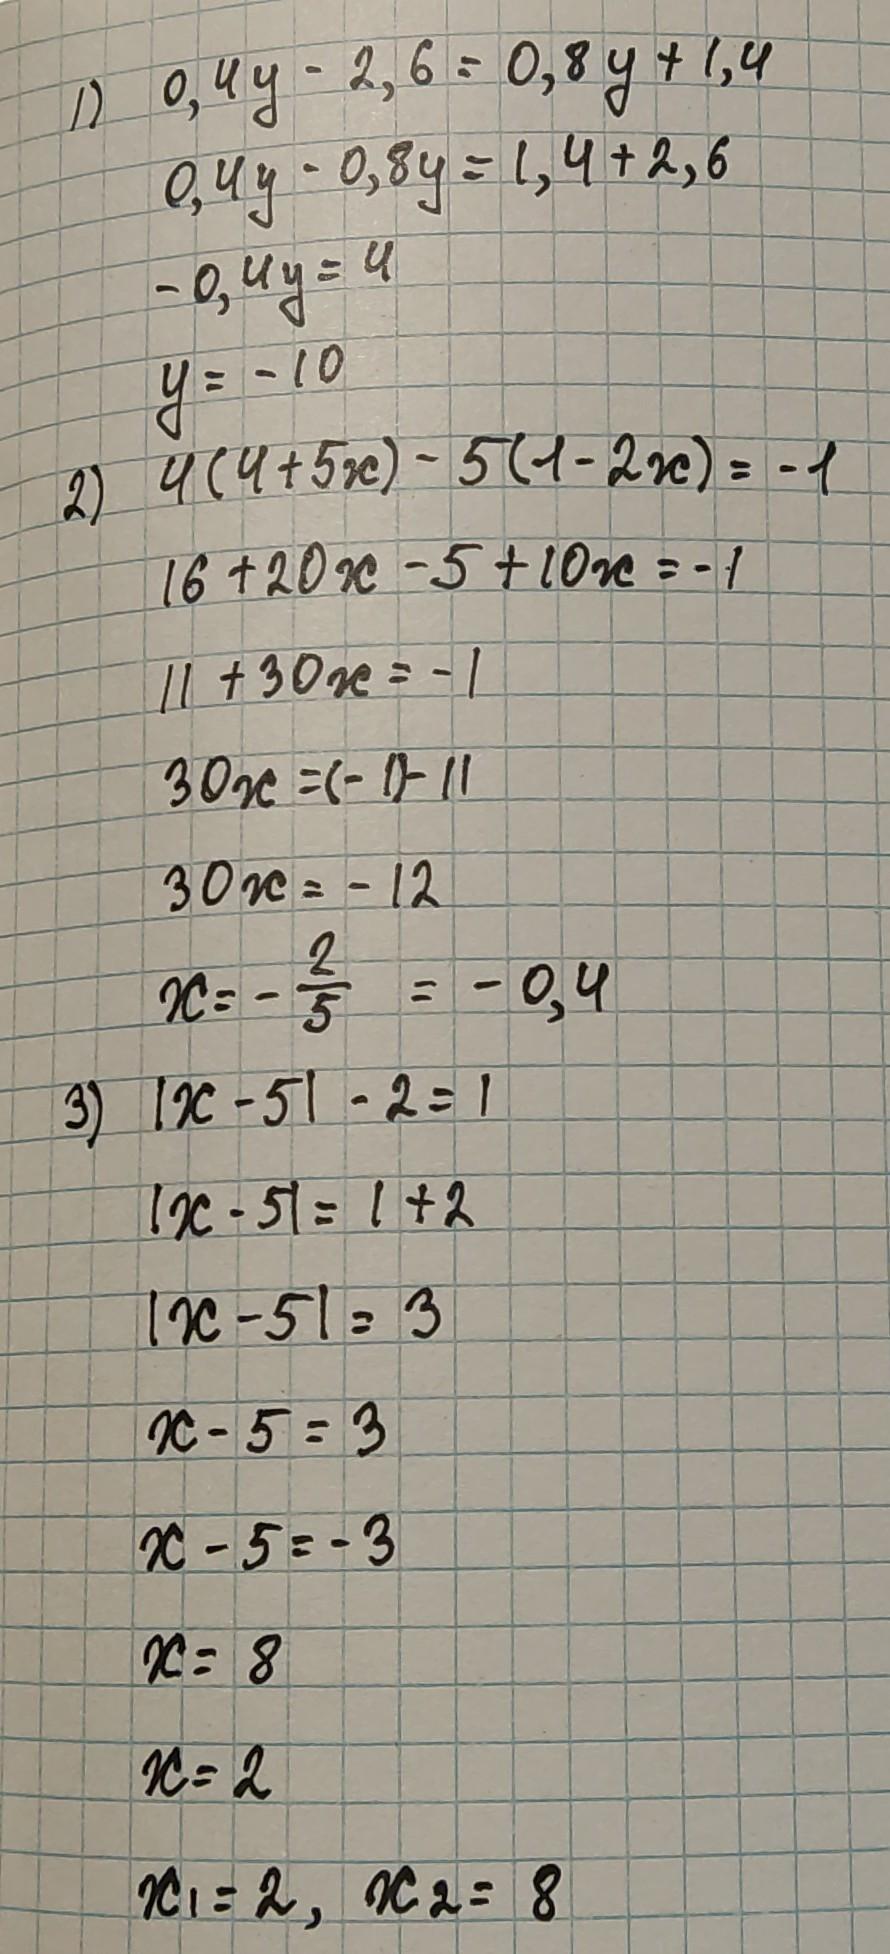 1) 0,4y - 2,6 = 0,8y + 1,4
0,4y - 0,8y = 1,4 + 2,6
-0,4y = 4
y = -10
2) 4(4+5x) - 5(1-2x) = -1
16 + 20x - 5 + 10x = -1
11 + 30x = -1
30x = (-1) - 11
30x = -12
x = - 2/5 = -0,4
3) |x - 5| - 2 = 1
|x - 5| = 1 + 2
|x - 5| = 3
x - 5 = 3
x - 5 = -3
x = 8
x = 2
x1 = 2, x2 = 8